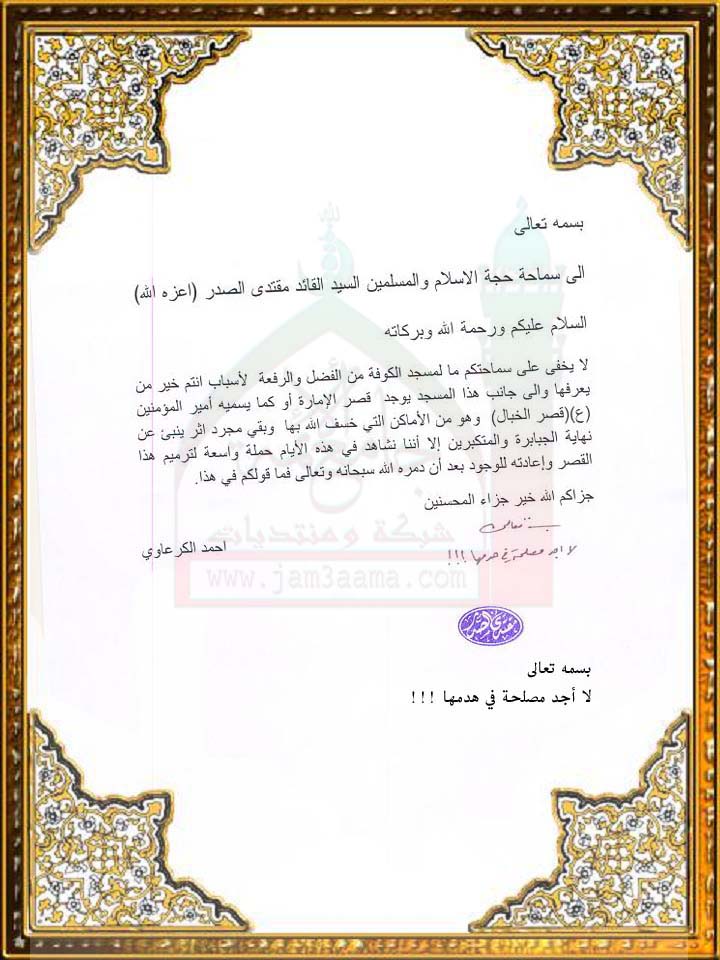 بسمه تعالى
الى سماحة حجة الاسلام والمسلمين السيد القائد مقتدى الصدر (اعزه الله)
السلام عليكم ورحمة الله وبركاته
لا يخفى على سماحتكم ما لمسجد الكوفة من الفضل والرفعة لأسباب انتم خير من
يعرفها والى جانب هذا المسجد يوجد قصر الإمارة أو كما يسميه أمير المؤمنين
(ع)(قصر الخبال) وهو من الأماكن التي خسف الله بها وبقي مجرد اثر ينبئ عن
نهاية الجبابرة والمتكبرين إلا أننا نشاهد في هذه الأيام حملة واسعة لترميم هذا
القصر وإعادته للوجود بعد أن دمره الله سبحانه وتعالى فما قولكم في هذا.
جزاكم الله خير جزاء المحسنين
بسمه تعالى
لا اجد مصلحة في هدمها !!!
احمد الكرعاوي
شبكة ومنتديات
www.jam3aama.com
مقتدى الصدر
بسمه تعالى
لا أجد مصلحة في هدمها !!!